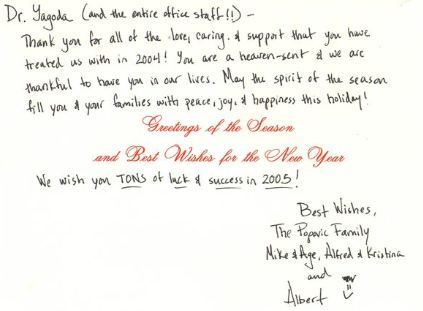 Dr. Yagoda (and the entire office staff!!) -
Thank you for all of the love, caring & support that you have
treated us with in 2004! You are a heaven-sent & we are
thankful to have you in our lives. May the spirit of the season
fill you & your families with peace, joy, & happiness this holiday!
Greetings of the Season
and Best Wishes for the New Year
We wish you TONS of luck & success in 2005!
Best Wishes,
The Popovic Family
Mike & Age, Alfred & Kristina
and
Albert